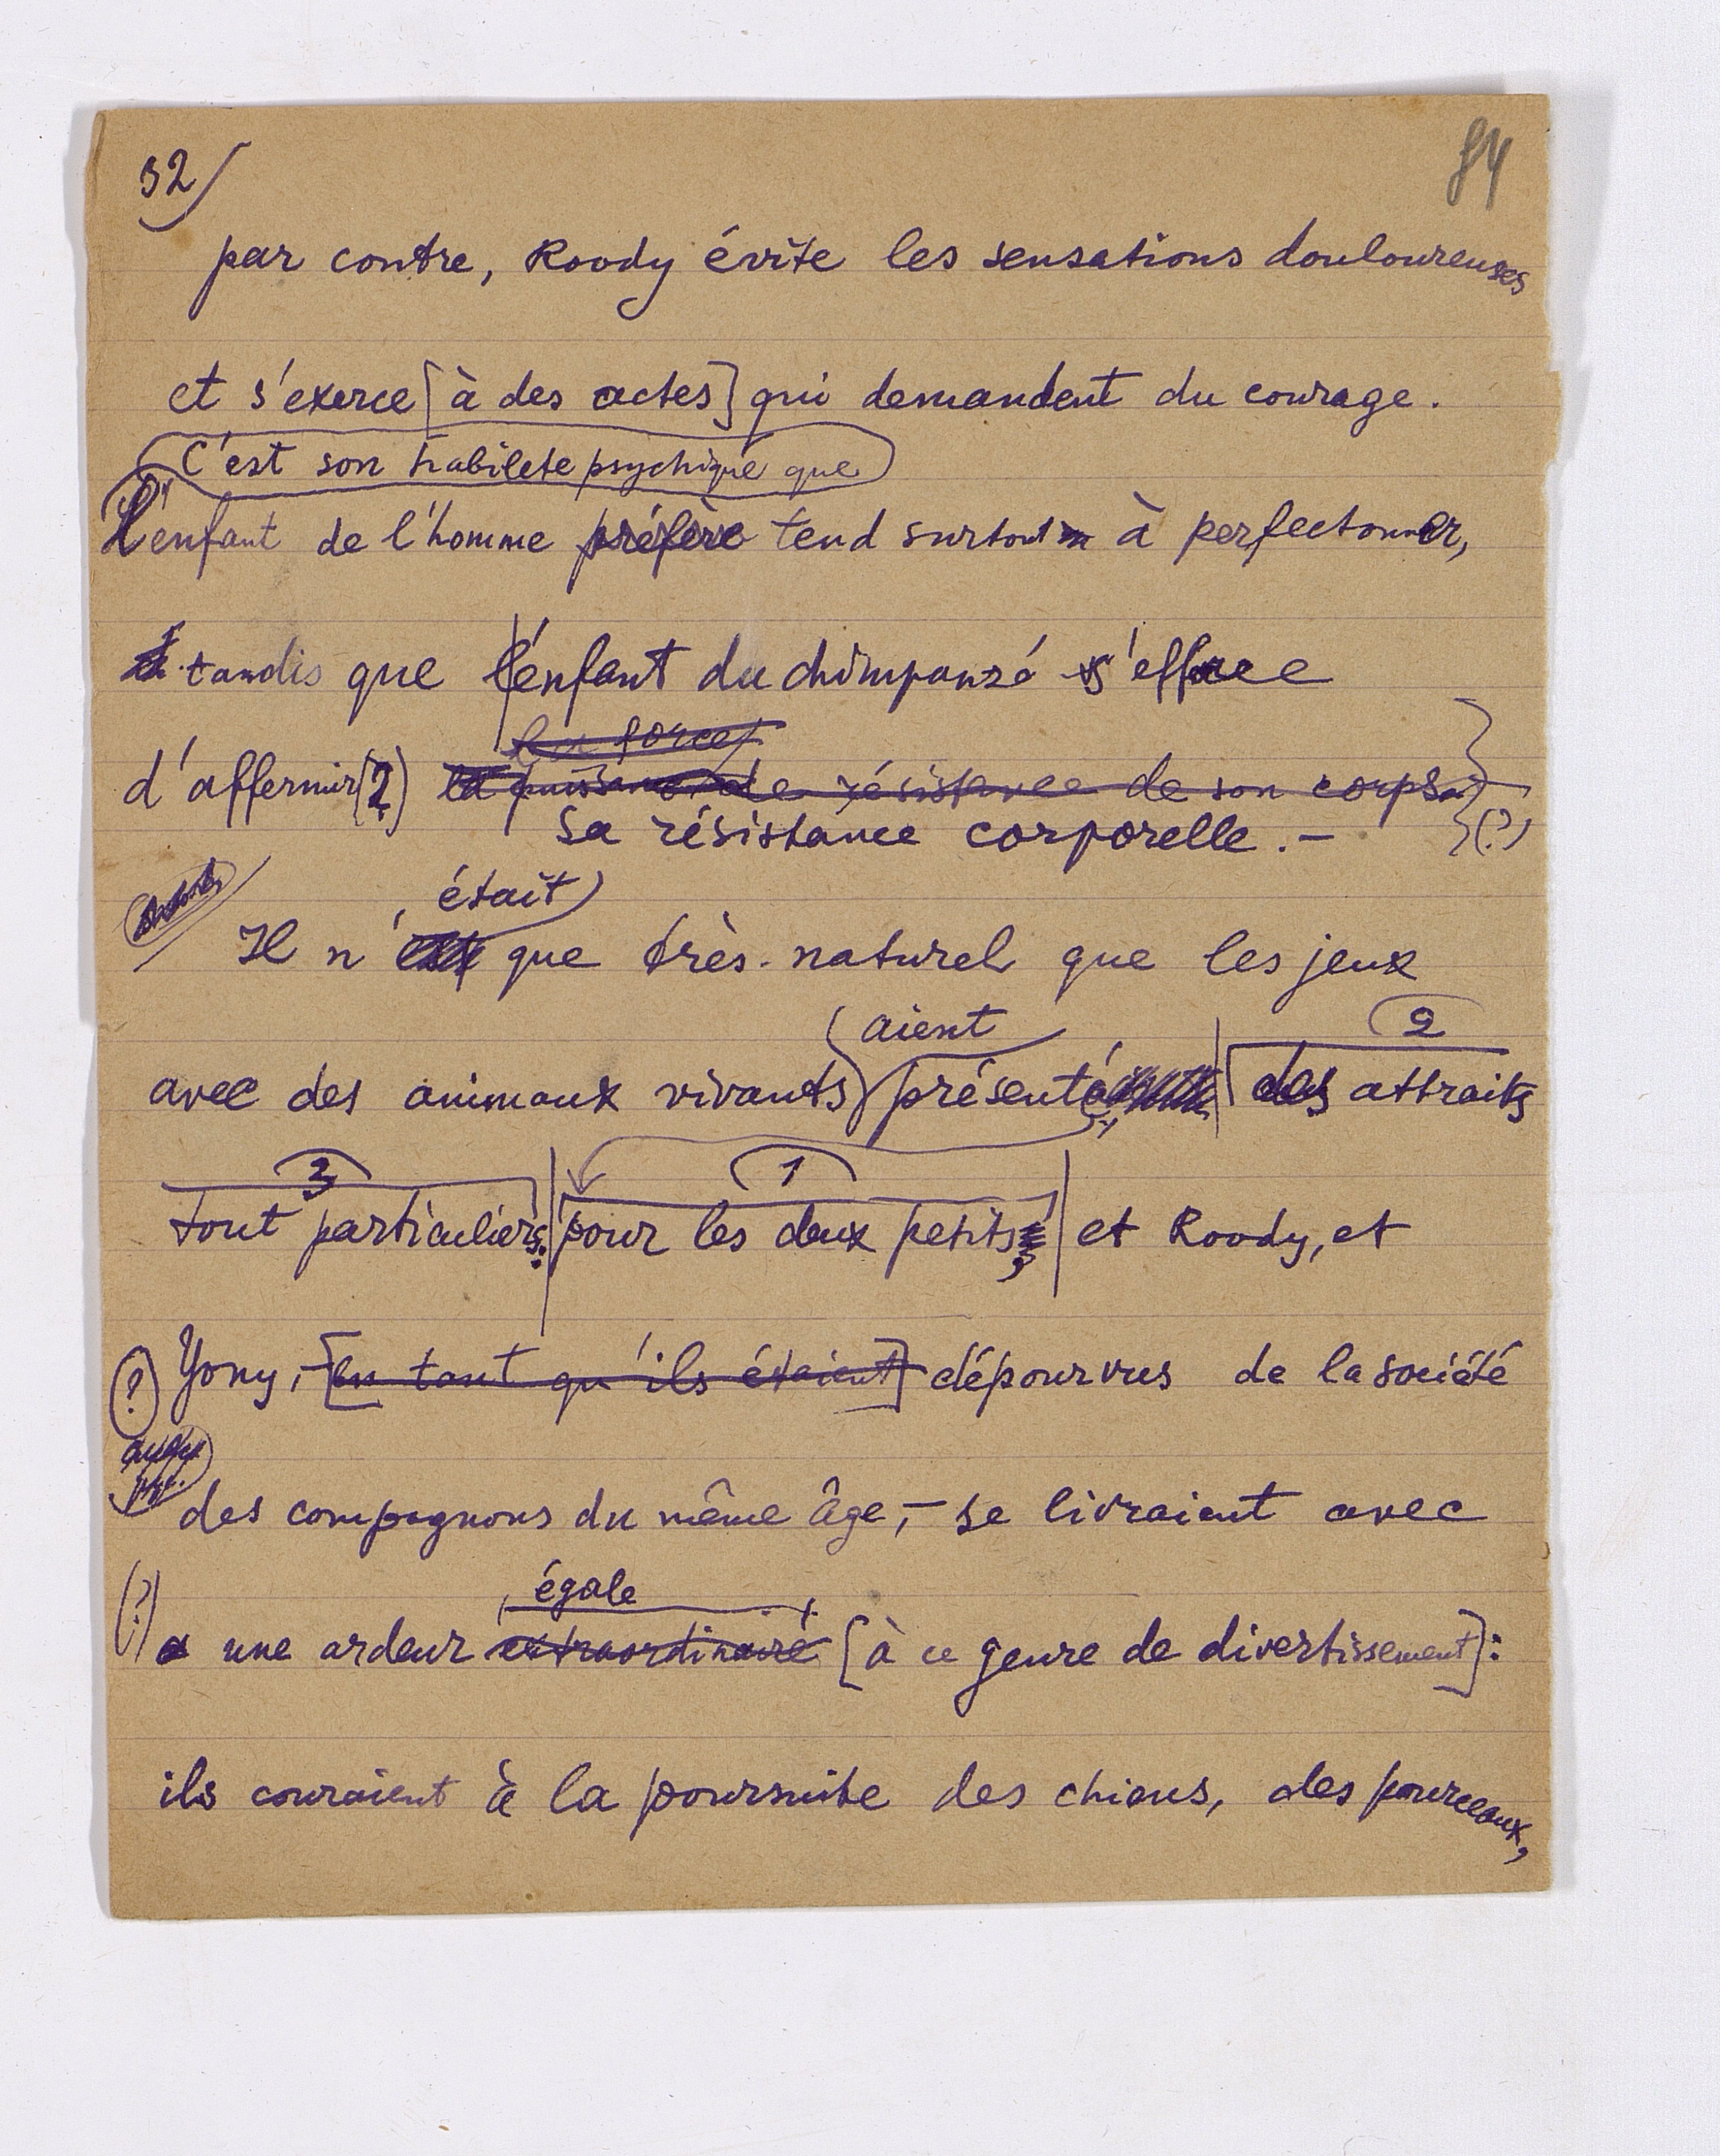 32/
84
par contre, Roody évite les sensations douloureuses
et s'exerce [à des actes] qui demandent du courage.
C'est son habilete psychique que
L'enfant de l'homme préfère tend surtout à perfectonner,
tandis que l'enfant du chimpanzé s'efface
les forces
d'affermir (2) la puissance de résistance de son corps.
sa résistance corporelle. - (?)
était
Il n' que très naturel que les jeux
aient 2
avec des animaux vivants présenté des attraits
3 1
tout particuliers. pour les deux petits, et Roody, et
(?) Yony, - [en tant qu'ils étaient] dépourvus de la société
des compagnons du même âge, - se livraient avec
égale
(?) une ardeur extraordinaire [à ce genre de divertissement]:
ils couraient à la poursuite des chiens, des pourceaux,